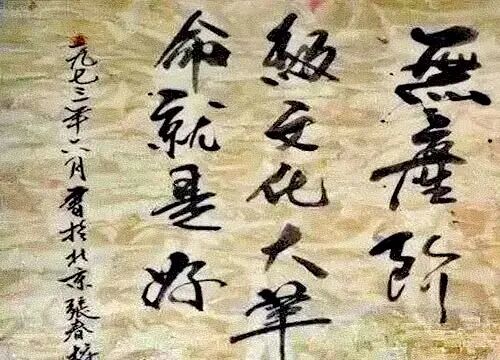 無產阶
級文化大革
命就是好
一九七三年六月書於北京 張春